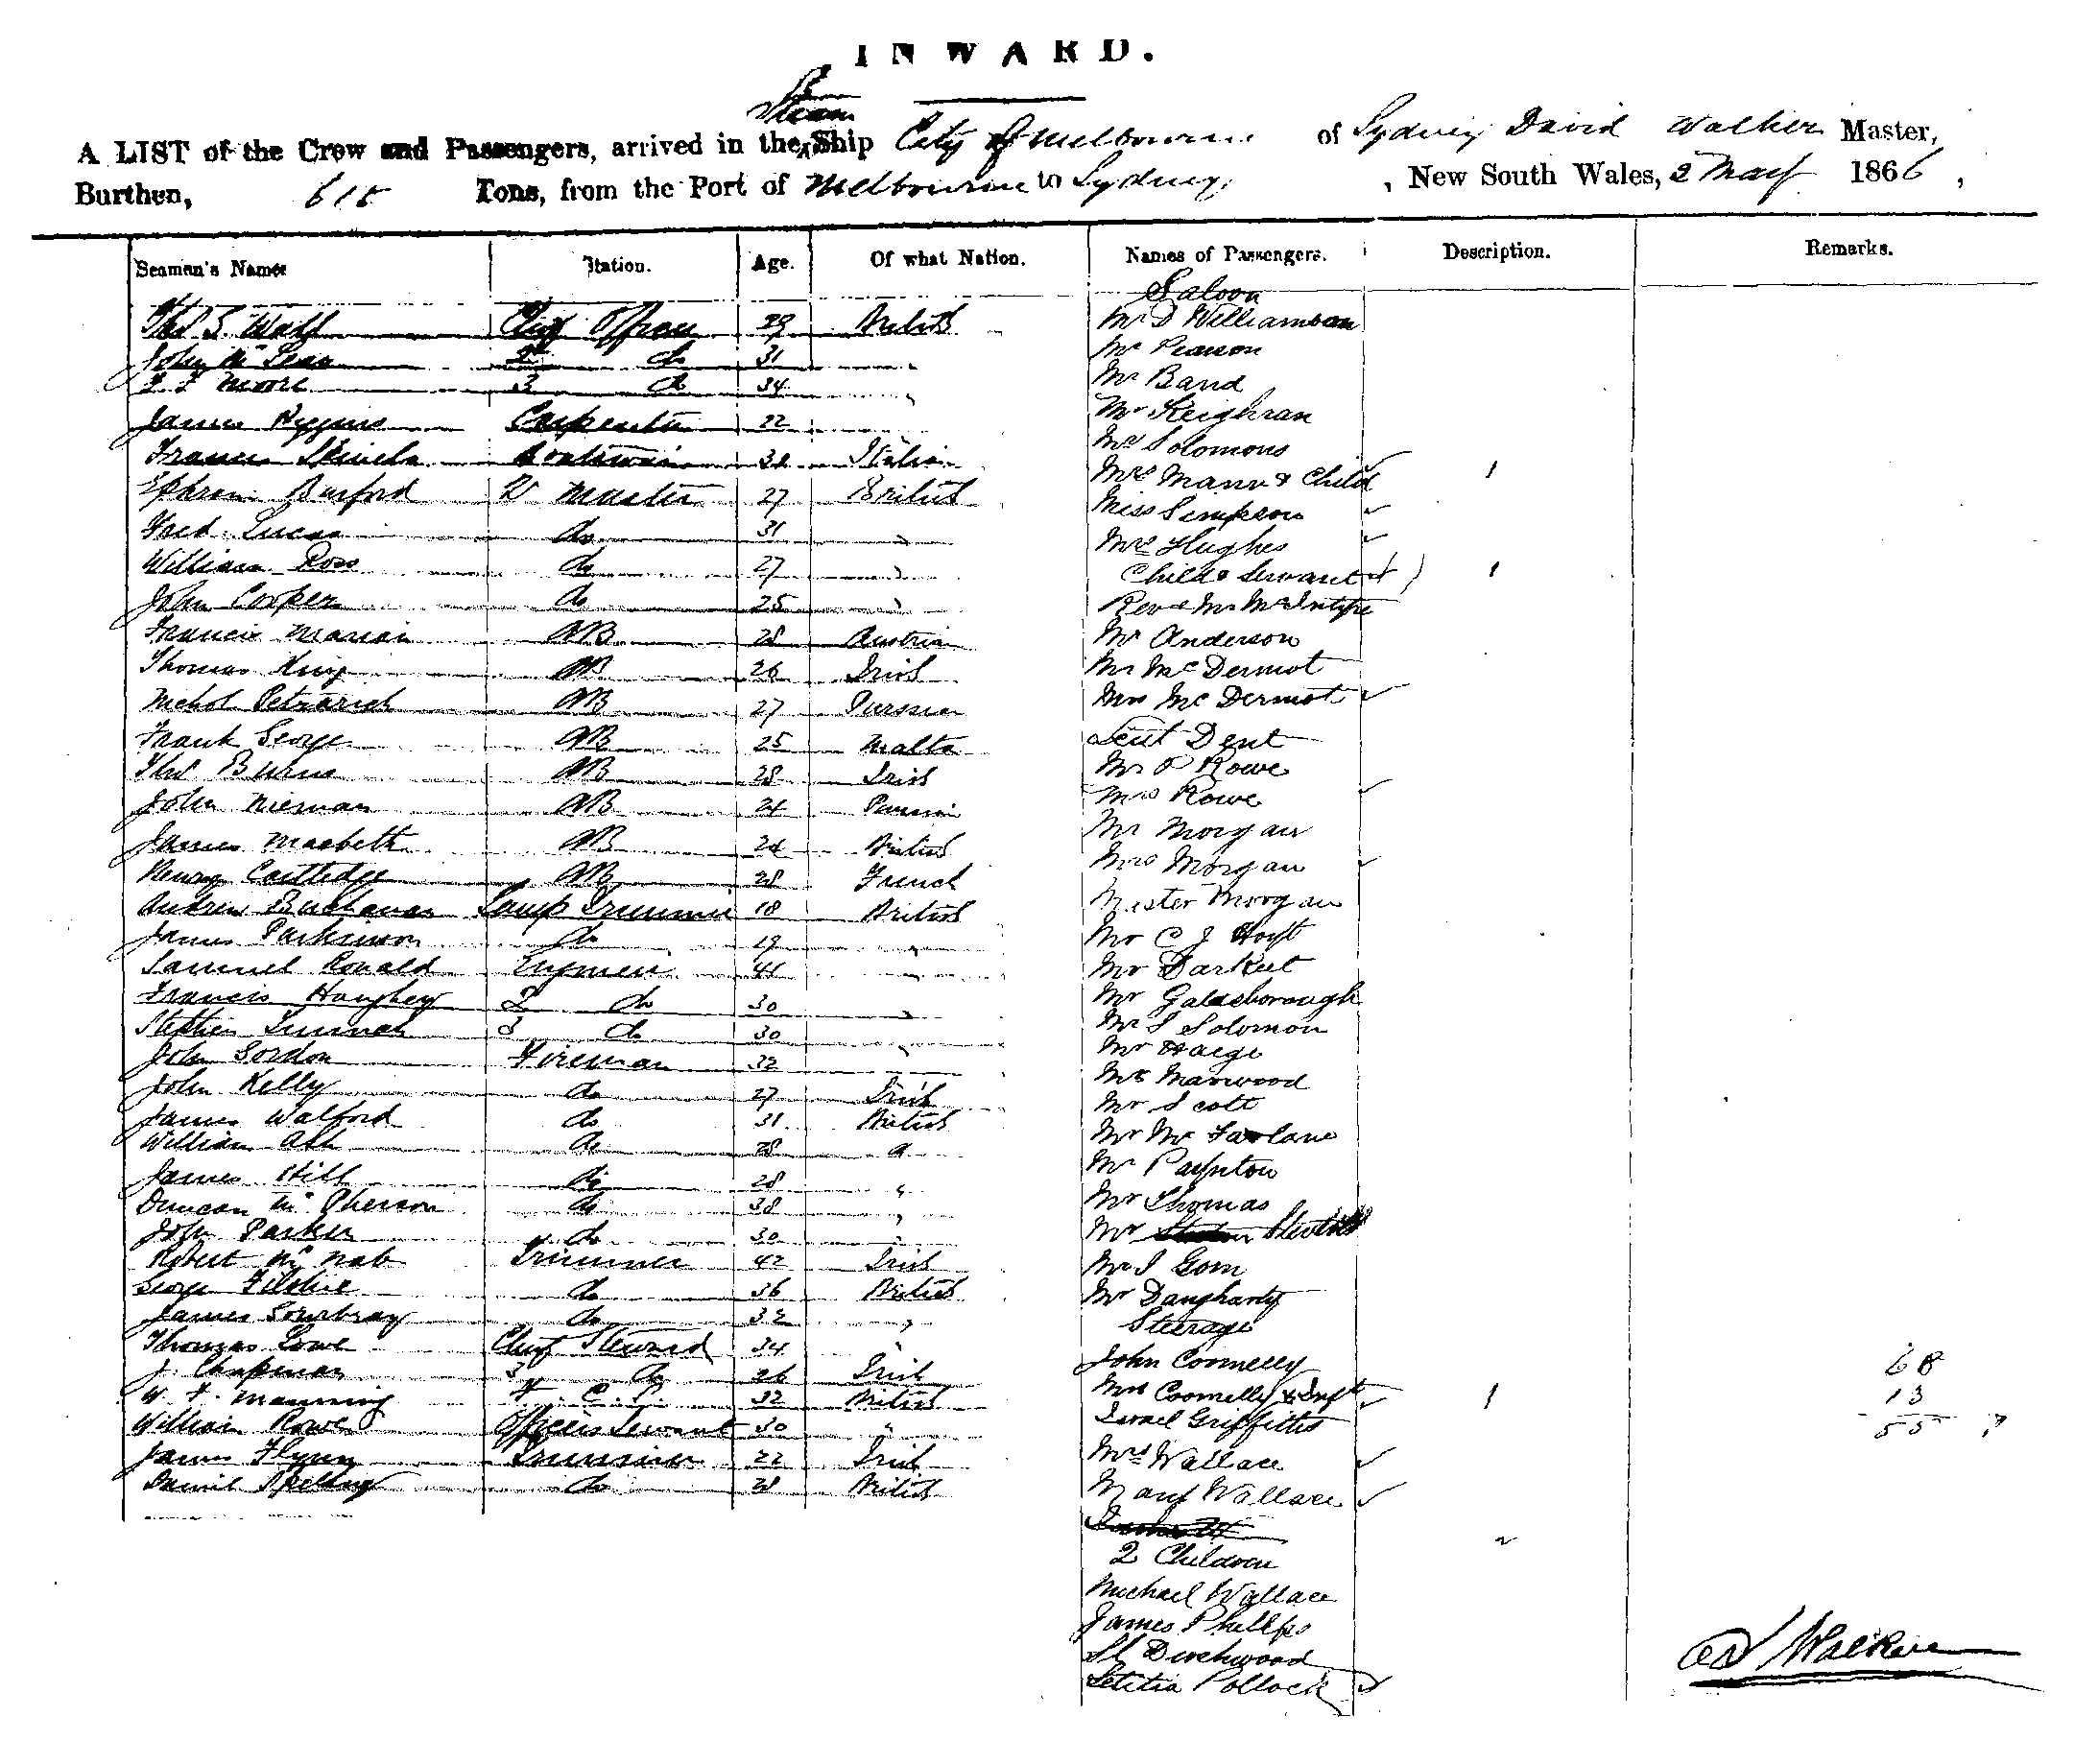 INWARD.
Steam
A LIST of the Crew and Passengers, arrived in the Ship City of Melbourne of Sydney David Walker Master,
Burthen, 615 Tons, from the Port of Melbourne to Sydney, New South Wales, 2 May 1866,
Seaman's Names Station. Age. Of what Nation. Names of Passengers. Description. Remarks.
Saloon
Chief Officer 29 British Mr D Williamson
John McLean 2 do 31 " Mr Pearson
F F Moore 3 do 34 " Mr Band
James Higgins Carpenter 22 Mr Keighran
Francis Boatswain Italian Mrs Solomons
Ephram Burford Qr Master 27 British Mrs Mann & Child 1
Fred Lucas do 31 " Miss Simpson
William Ross do 27 " Mrs Hughes
Child & Servant 1
John Cooper do 25 " Revd Mr McIntyre
Francis Marian AB 28 Austrian Mr Anderson
Thomas King AB 26 Irish Mr McDermot
Nichol Petrarich AB 27 Mrs McDermot
Frank George AB 25 Malta Lieut Dent
Thos Burns AB 28 Irish Mr Rowe
John Nieman AB 24 Mrs Rowe
James Macbeth AB 24 British Mr Morgan
Henry AB 28 French Mrs Morgan
Andrew Buchanan Lamp Trimmer 18 British Master Morgan
James Parkinson do 19 " Mr C J Hoyt
Samuel Ronald Engineer 41 " Mr
Francis Haughey 2 do 30 " Mr Goldsborough
Stephen 3 do 30 " Mr S Solomon
John Gordon Fireman 32 Mr Haege
John Kelly do 27 Irish Mr Marwood
James Walford do 31 British Mr Scott
William Ash do 28 " Mr McFarlane
James Hill do 28 " Mr Paynton
Duncan McPherson do 38 " Mr Thomas
John Parker do 30 " Mr
Robert McNab Trimmer 42 Irish Mr J Gorn
George do 36 British Mr Daugharty
James Sowbray do 32 " Steerage
Thomas Lowe Chief Steward 34 " John Connelly 68
J. Chapman 2 do 26 Irish Mrs Connelly & Inft 1 13
W. F. Manning 32 British Israel Griffiths 55
William Rowe Officers Servant 30 " Mrs Wallace
James Flynn Trimmer 22 Irish Mary Wallace
Daniel do 28 British
2 Children 2
Michael Wallace
James Phillps
Letitia Pollock
D Walker